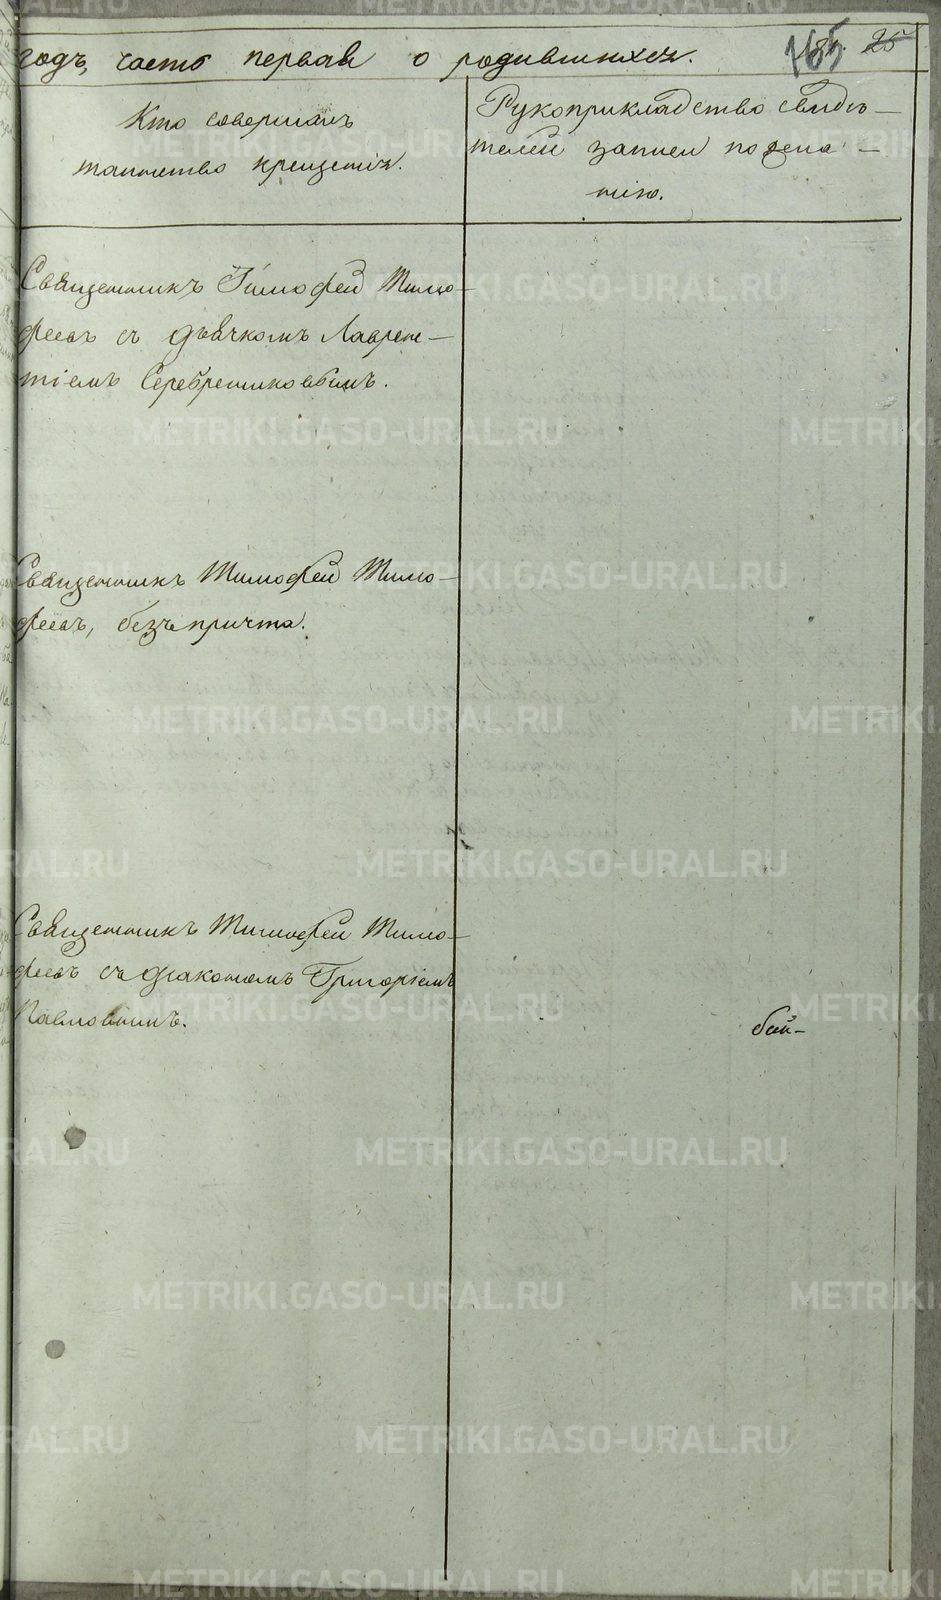 годъ, часть первая о родившихся. 165 25
Кто совершалъ
таинство крещенія.
Рукоприкладство свидѣ-
телей записи по жела-
нію.
Священникъ Тимофей Тимо-
феевъ съ дьячкомъ Лаврен-
тіемъ Серебрениковымъ.
Священникъ Тимофей Тимо-
феевъ, безъ причта.
Священникъ Тимофей Тимо-
феевъ съ діакономъ Григоріемъ
Павловымъ.
бай-
METRIKI.GASO-URAL.RU